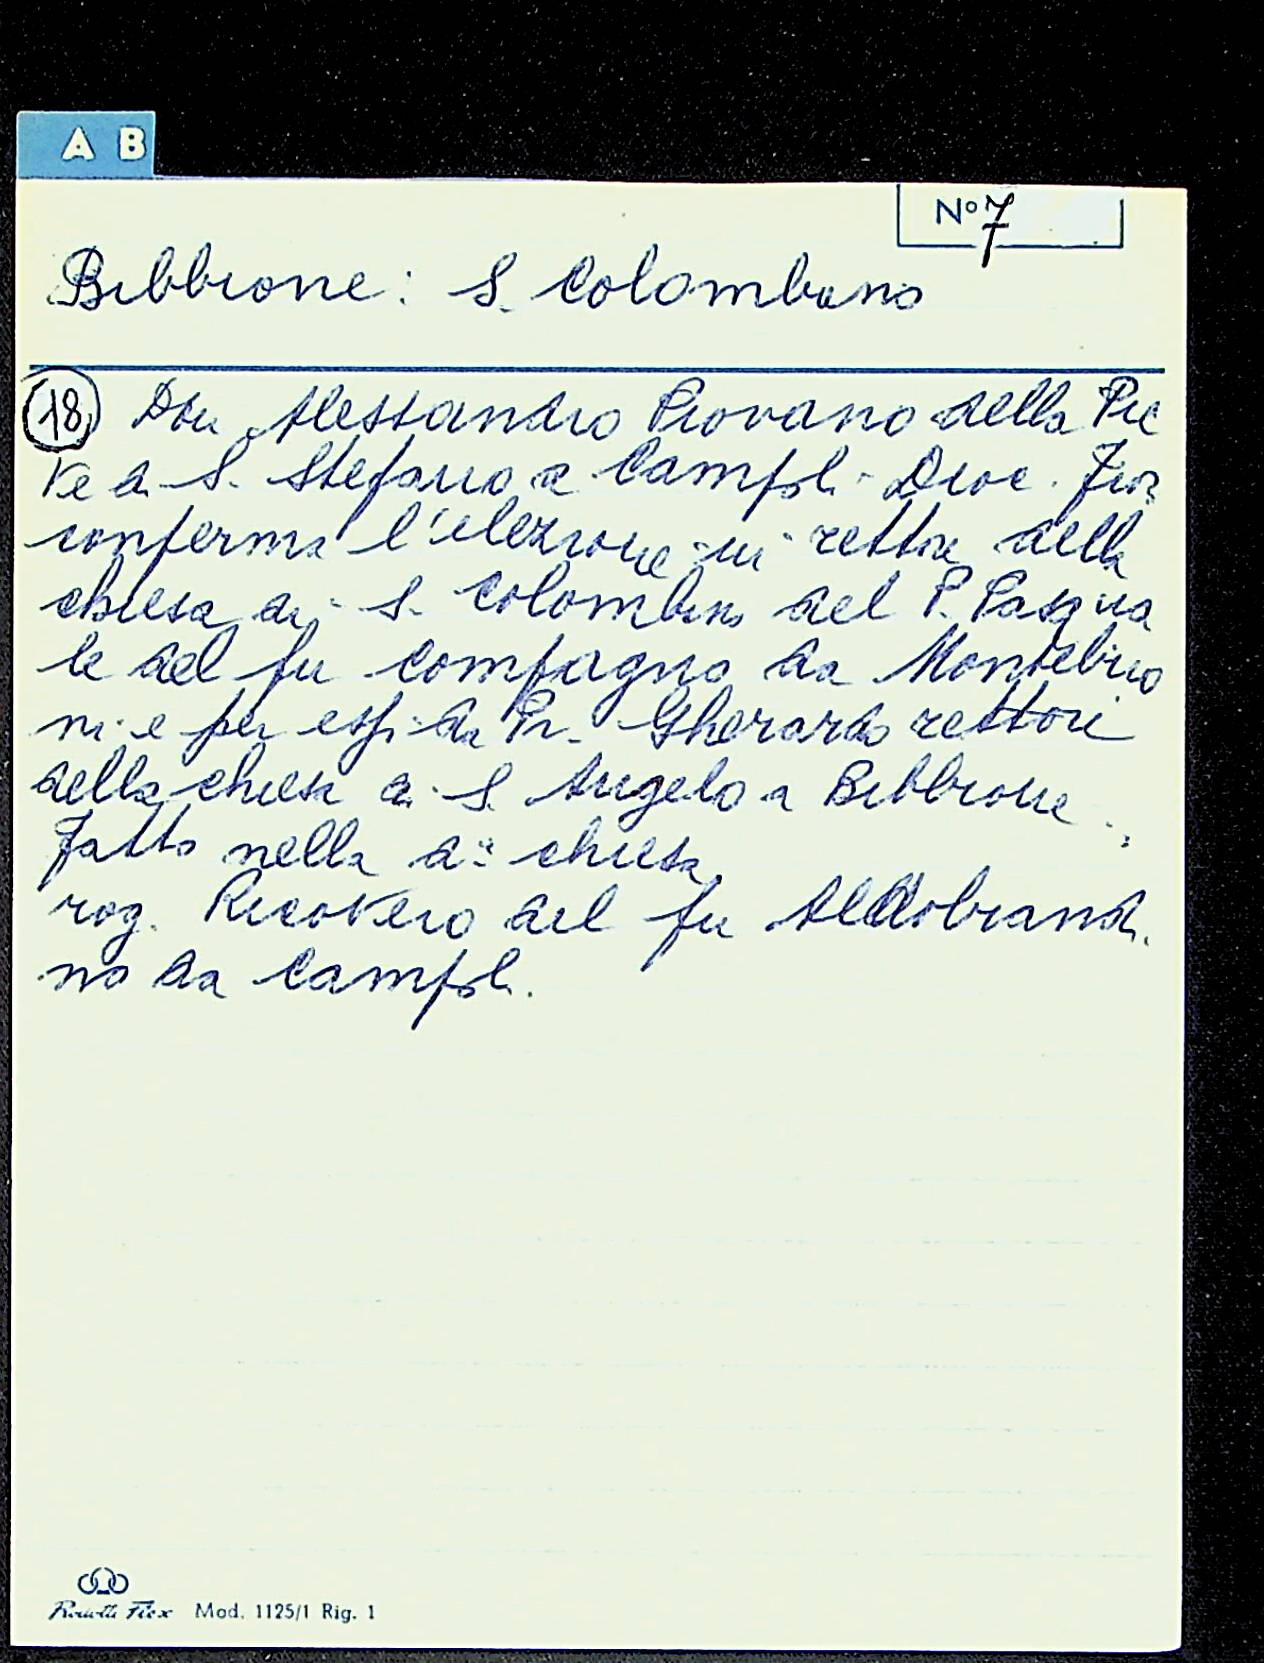 A B
No 7
Bibbione: S. Colombano
18) Don Alessandro Piovano della Pie
ve di S. Stefano a Campoli - Dioc. Fior.
conferma l'elezione in rettore della
chiesa di S. Colombano del P. Pasqua
le del fu Compagno da Montebuo
ni e per essi da Pr. Gherardo rettori
della chiesa di S. Angelo a Bibbione.
Fatto nella d.a chiesa
rog. Ricovero del fu Aldobrandi
no da Campoli.
Flex Mod. 1125/1 Rig. 1